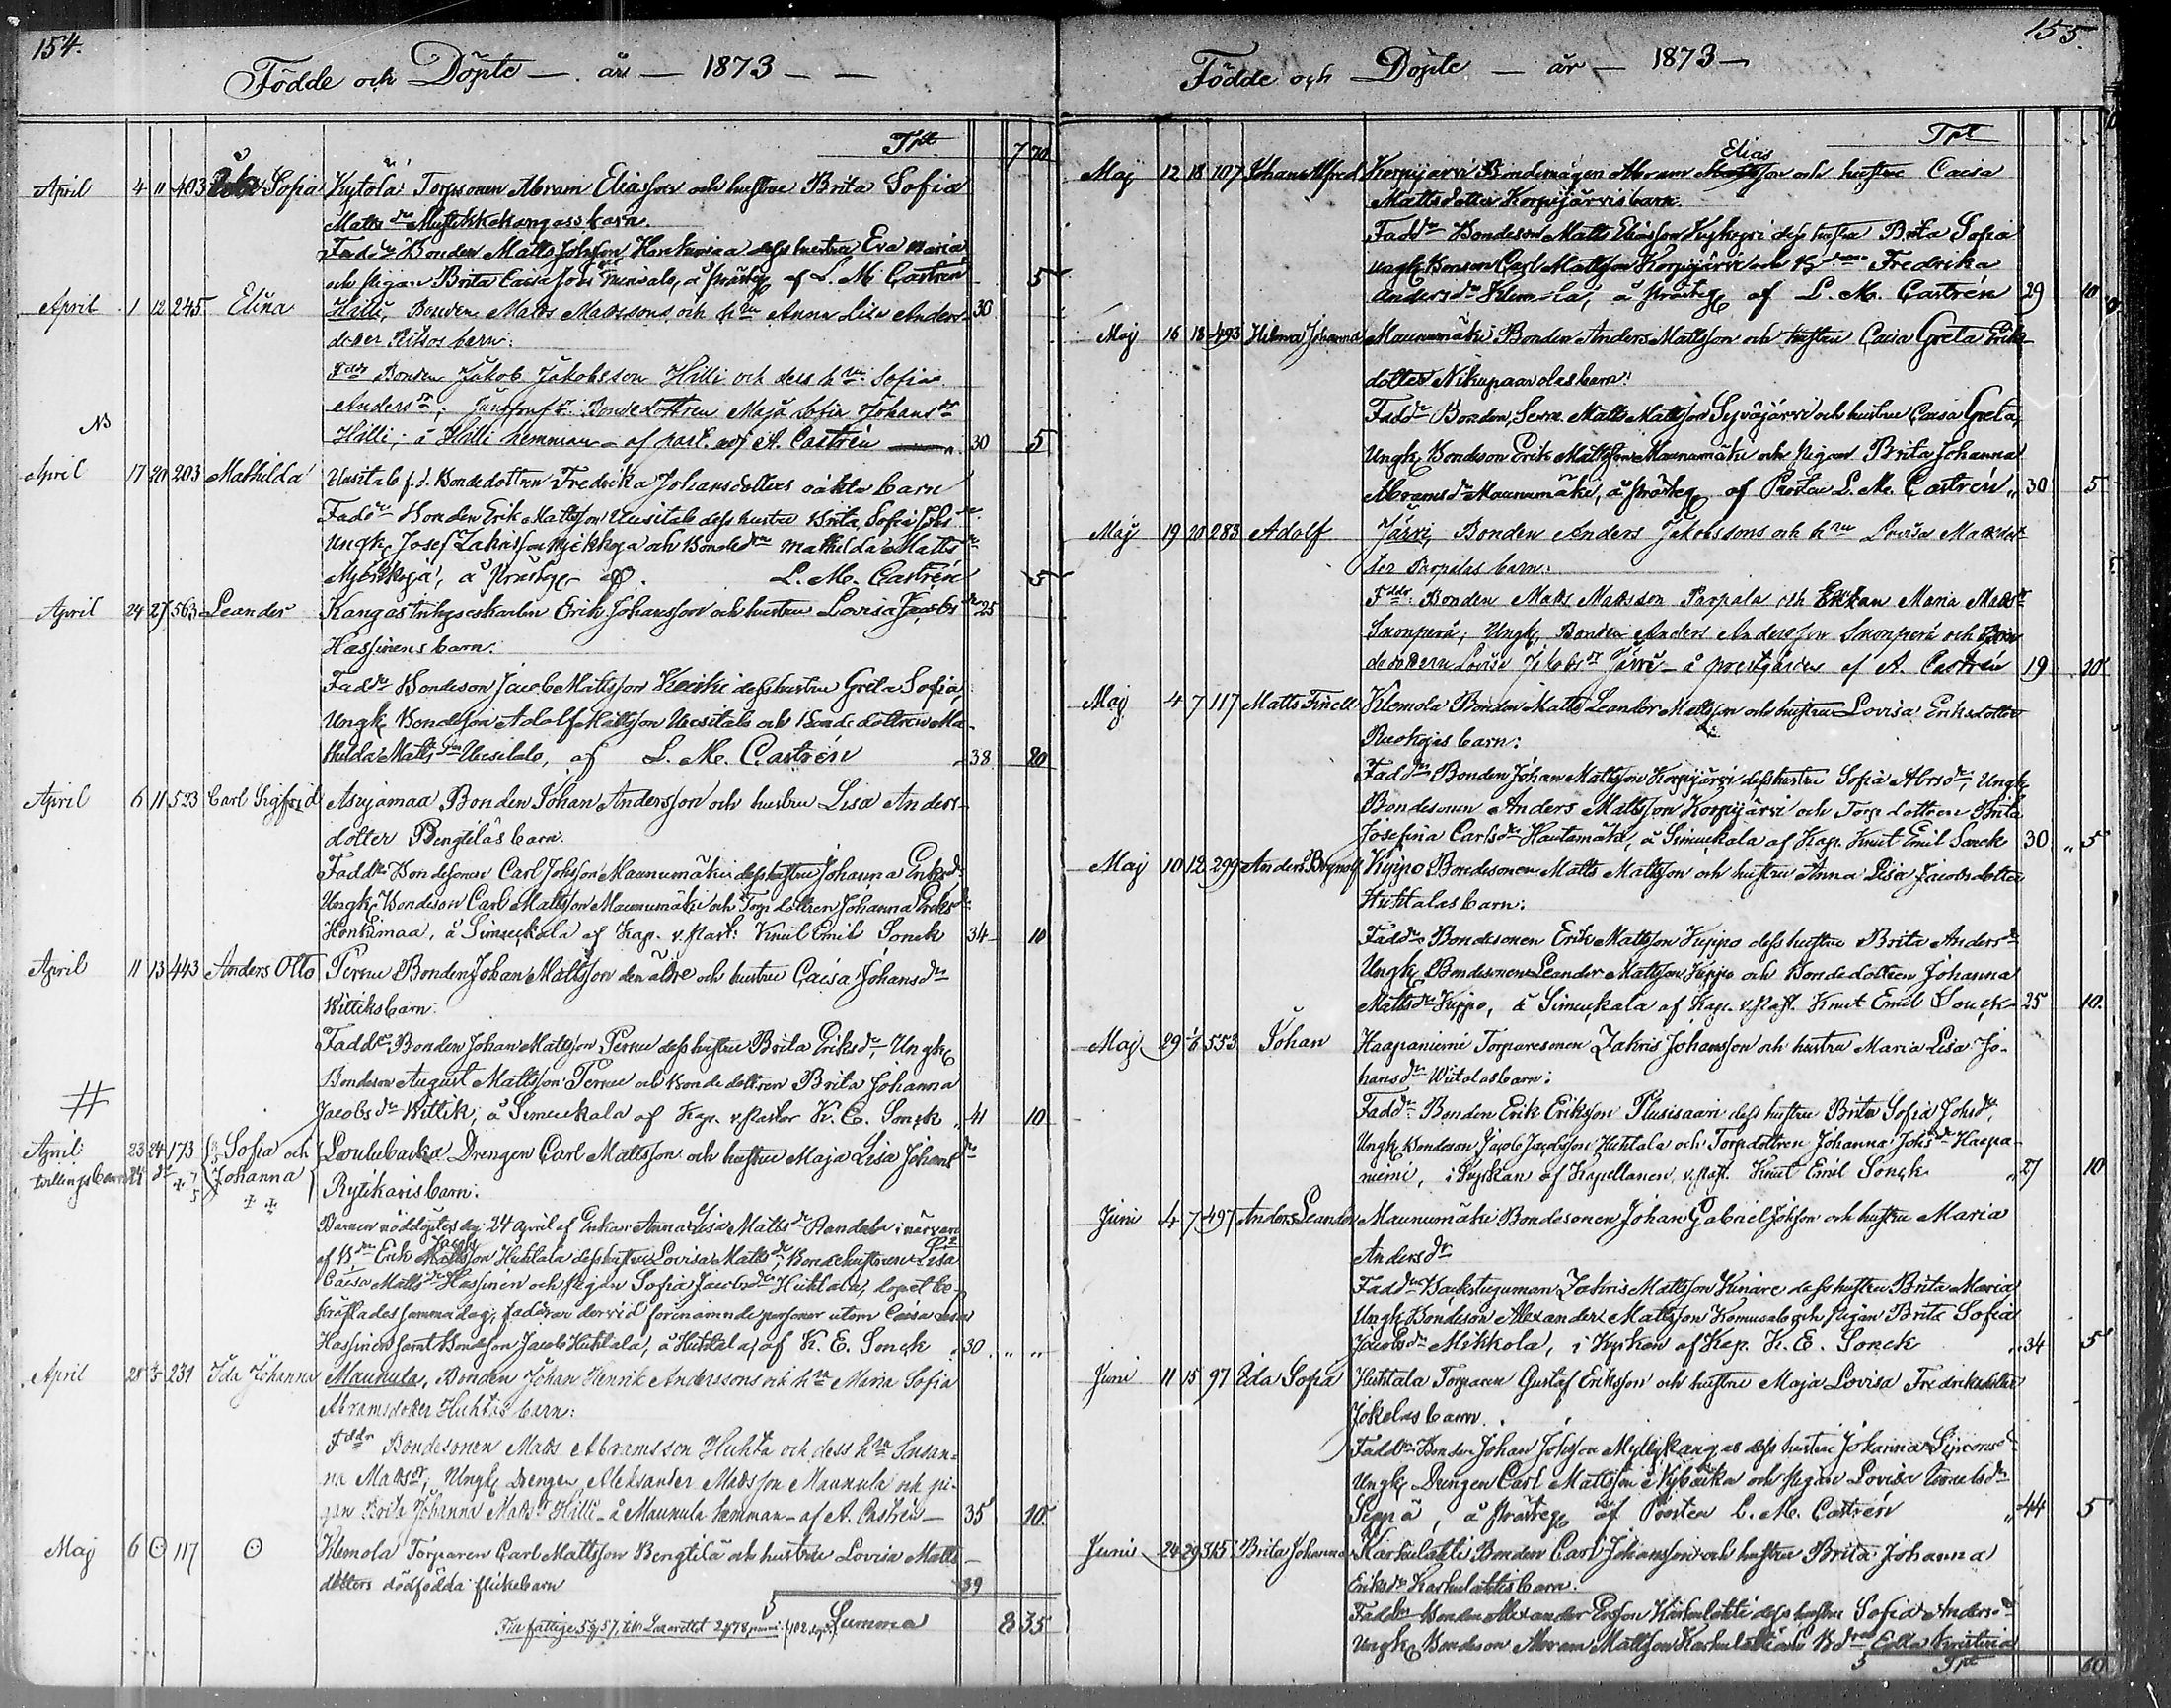 154.
Födde och Döpte — år — 1873 — —
Tpt 7 70
April 4 11 403 Sofia Torpsonen Abram Eliasson och hustru Brita Sofia
Matts dr barn.
Fadd: Bonden Matts Johsson dess hustru Eva Maria
och Pigan Brita Caisa å prästg af L. M. Castrén 5
April 1 12 245 Elina Hilli, Bonden Matts Mattssons och h:ru Anna Lisa Anders- 30
dotter barn:
Fddr Bonden Jakob Jakobsson Hilli och dess h:ru Sofia
Anders dr; Bondedottren Maja Sofia Johans dr
NB Hilli; å Hilli hemman - af past. adj A. Castrén 30 5
April 17 20 203 Mathilda Uusitalo Bondedottren Fredrika Johansdotters oäkta barn
Fadd Bonden Erik Mattsson Uusitalo dess hustru Brita Sofia Johs dr
Ungk Josef Zakrisson och Bonded:n Mathilda Matts dr
å prästg af L. M. Castrén 5
April 24 27 563 Leander Kangas Erik Johansson och hustru Lovisa Jacobs dr 25
Hassinens barn.
Fadd Bondeson Jacob Mattsson dess hustru Greta Sofia,
Ungk Bondeson Adolf Mattsson Uusitalo och Bondedottren Ma-
thilda Matts dr Uusitalo, af L. M. Castrén 38 20
April 6 11 533 Carl Sigfrid Asujamaa Bonden Johan Andersson och hustru Lisa Anders-
dotter Bengtiläs barn.
Fadd: Bondesonen Carl Johsson Maunumäki dess hustru Johanna Eriks dr
Ungk: Bondeson Carl Mattsson Maunumäki och Torpdottren Johanna Eriks dr
Honkimaa, å Simukkala af Kap. v. Past: Knut Emil Sonck 34 10
April 11 13 443 Anders Otto Pernu Bonden Johan Mattsson den äldre och hustru Caisa Johans dr
Wittiks barn:
Fadd: Bonden Johan Mattsson Pernu dess hustru Brita Eriks dr, Ungk
Bondeson August Mattsson Pernu och Bondedottren Brita Johanna
# Jacobs dr Wittik, å Simukkala af Kap. v. Pastor K. E. Sonck 41 10
April 23 24 173 Sofia och Drengen Carl Mattsson och hustru Maja Lisa Johans dr
tvillingsbarn Johanna Rytikaris barn:
Barnen nöddöptes dag 24 april af Enkan Anna Lisa Matts dr Randala i närvaro
af Erik Jacobsson Huhtala dess hustru Lovisa Matts dr, Bondehustrun Lisa
Caisa Matts dr Hassinen och pigan Sofia Jacobs dr Huhtala, dopet be-
kräftades samma dag, faddrar dervid förenämnde personer utom Caisa Lisa
Hassinen samt Bondeson Jacob Huhtala, å Huhtala, af K. E. Sonck 30 " "
April 28 231 Ida Johanna Maunula, Bonden Johan Henrik Anderssons och h:ru Maria Sofia
Abramsdotter Huhtas barn:
Fddr Bondesonen Matts Abramsson Huhta och dess h:ru Susan-
na Matts dr; Ungk Drengen Aleksander Mattsson Maunula och pi-
gan Brita Johanna Matts dr Hilli - å Maunula hemman - af A. Castrén — 35 10
Maj 6 ⊙ 117 ⊙ Klemola Torparen Carl Mattsson Bengtilä och hustru Lovisa Matts-
dotters dödfödda flickebarn 39
Summa 8 35
155.
Födde och Döpte — år — 1873 —
Tpt
Maj 12 18 107 Johan Alfred Korpijärvi Bondemågen Abram Elias son och hustru Caisa
Mattsdotter Korpijärvis barn.
Fadd Bondeson Matts Eliasson dess hustru Brita Sofia
Ungk Bonson Carl Mattsson Korpijärvi och Fredrika
Anders dr Klemola, å prästg af L. M. Castrén 29 10
Maj 16 18 493 Hilma Johanna Maunumäki Bonden Anders Mattsson och hustru Caisa Greta Eriks-
dotter Nikupaavolas barn:
Fadd Bonden, Sexm. Matts Mattsson Syväjärvi och hustru Caisa Greta,
Ungk Bondeson Erik Mattsson Maunumäki och Pigan Brita Johanna
Abrams dr Maunumäki, å prästg af Prosten L. M. Castrén " 30 5
Maj 19 20 283 Adolf Järvi, Bonden Anders Jakobssons och h:ru Lovisa Mattsdot-
ter Parpalas barn:
Fddr: Bonden Matts Mattsson Parpala och Enkan Maria Matts dr
Suonperä; Ungk Bonden Anders Andersson Suonperä och Bon-
dedottern Lovisa Jakobs dr Järvi - å prestgården af A. Castrén 19 20
Maj 4 7 117 Matts Finell Klemola Bonden Matts Leander Mattsson och hustru Lovisa Eriksdotter
Ruokojas barn:
Fadd Bonden Johan Mattsson Korpijärvi dess hustru Sofia Abrs dr, Ungk
Bondesonen Anders Mattsson Korpijärvi och Torpdottren Brita
Josefina Carls dr Hautamäki, å Simukkala af Kap. Knut Emil Sonck 30 " 5
Maj 10 12 299 Anders Brynolf Kuppo Bondesonen Matts Mattsson och hustru Anna Lisa Jacobsdotter
Huhtalas barn:
Fadd Bondesonen Erik Mattsson Kuppo dess hustru Brita Anders dr
Ungk Bondesonen Leander Mattsson Kuppo och Bondedottren Johanna
Matts dr Kuppo, å Simukkala af Kap. v. Past. Knut Emil Sonck 25 10.
Maj 29 1/6 553 Johan Haapaniemi Torparesonen Zakris Johansson och hustru Maria Lisa Jo-
hans dr Wiitalas barn:
Fadd Bonden Erik Eriksson Plusisaari dess hustru Brita Sofia Johs dr,
Ungk Bondeson Jacob Jacobsson Huhtala och Torpdottren Johanna Johs dr Haapa-
niemi, i Kyrkan af Kapellanen, v. Past. Knut Emil Sonck " 27 10
Juni 4 7 497 Anders Leander Maunumäki Bondesonen Johan Gabriel Johsson och hustru Maria
Anders dr
Fadd Backstuguman Zakris Mattsson Kunäre dess hustru Brita Maria
Ungk Bondeson Alexander Mattsson Komusalo och Pigan Brita Sofia
Jacobs dr Mikkola, i Kyrkan af Kap. K. E. Sonck " 34 5
Juni 11 15 97 Ida Sofia Huhtala Torparen Gustaf Eriksson och hustru Maja Lovisa Fredriksdotter
Jokelas barn.
Fadd: Bonden Johan Johsson Myllykangas dess hustru Johanna Simons dr
Ungk Drengen Carl Mattsson å Nybacka och Pigan Lovisa
Seppä, å prästg af Prosten L. M. Castrén " 44 5
Juni 24 29 315 Brita Johanna Karhulahti Bonden Carl Johansson och hustru Brita Johanna
Eriks dr Karhulahtis barn.
Fadd Bonden Alexander Ersson Karhulahti dess hustru Sofia Anders dr
Ungk Bondeson Abram Mattsson Karhulahti och Edla Kristina
5 Tpt 60